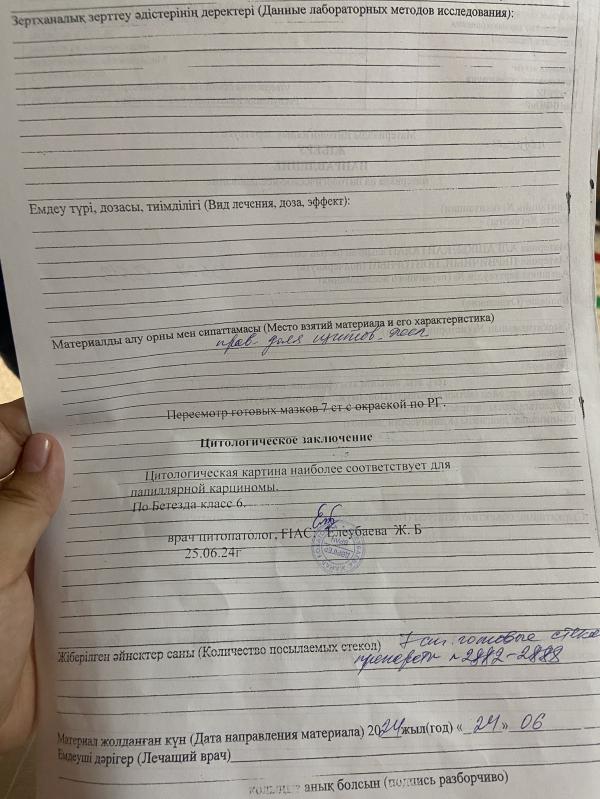 Зертханалық зерттеу әдістерінің деректері (Данные лабораторных методов исследования):
Емдеу түрі, дозасы, тиімділігі (Вид лечения, доза, эффект):
Материалды алу орны мен сипаттамасы (Место взятий материала и его характеристика)
прав. доля щитов.
Пересмотр готовых мазков 7 ст с окраской по РГ.
Цитологическое заключение
Цитологическая картина наиболее соответствует для
папиллярной карциномы.
По Бетезда класс 6.
врач цитопатолог, FIAC, Елеубаева Ж. Б
25.06.24г
Жіберілген әйнектер саны (Количество посылаемых стекол) 7 готовые
препараты 2882-2888
Материал жолданған күн (Дата направления материала) 2024 жыл(год) «24» 06
Емдеуші дәрігер (Лечащий врач)
анық болсын (подпись разборчиво)